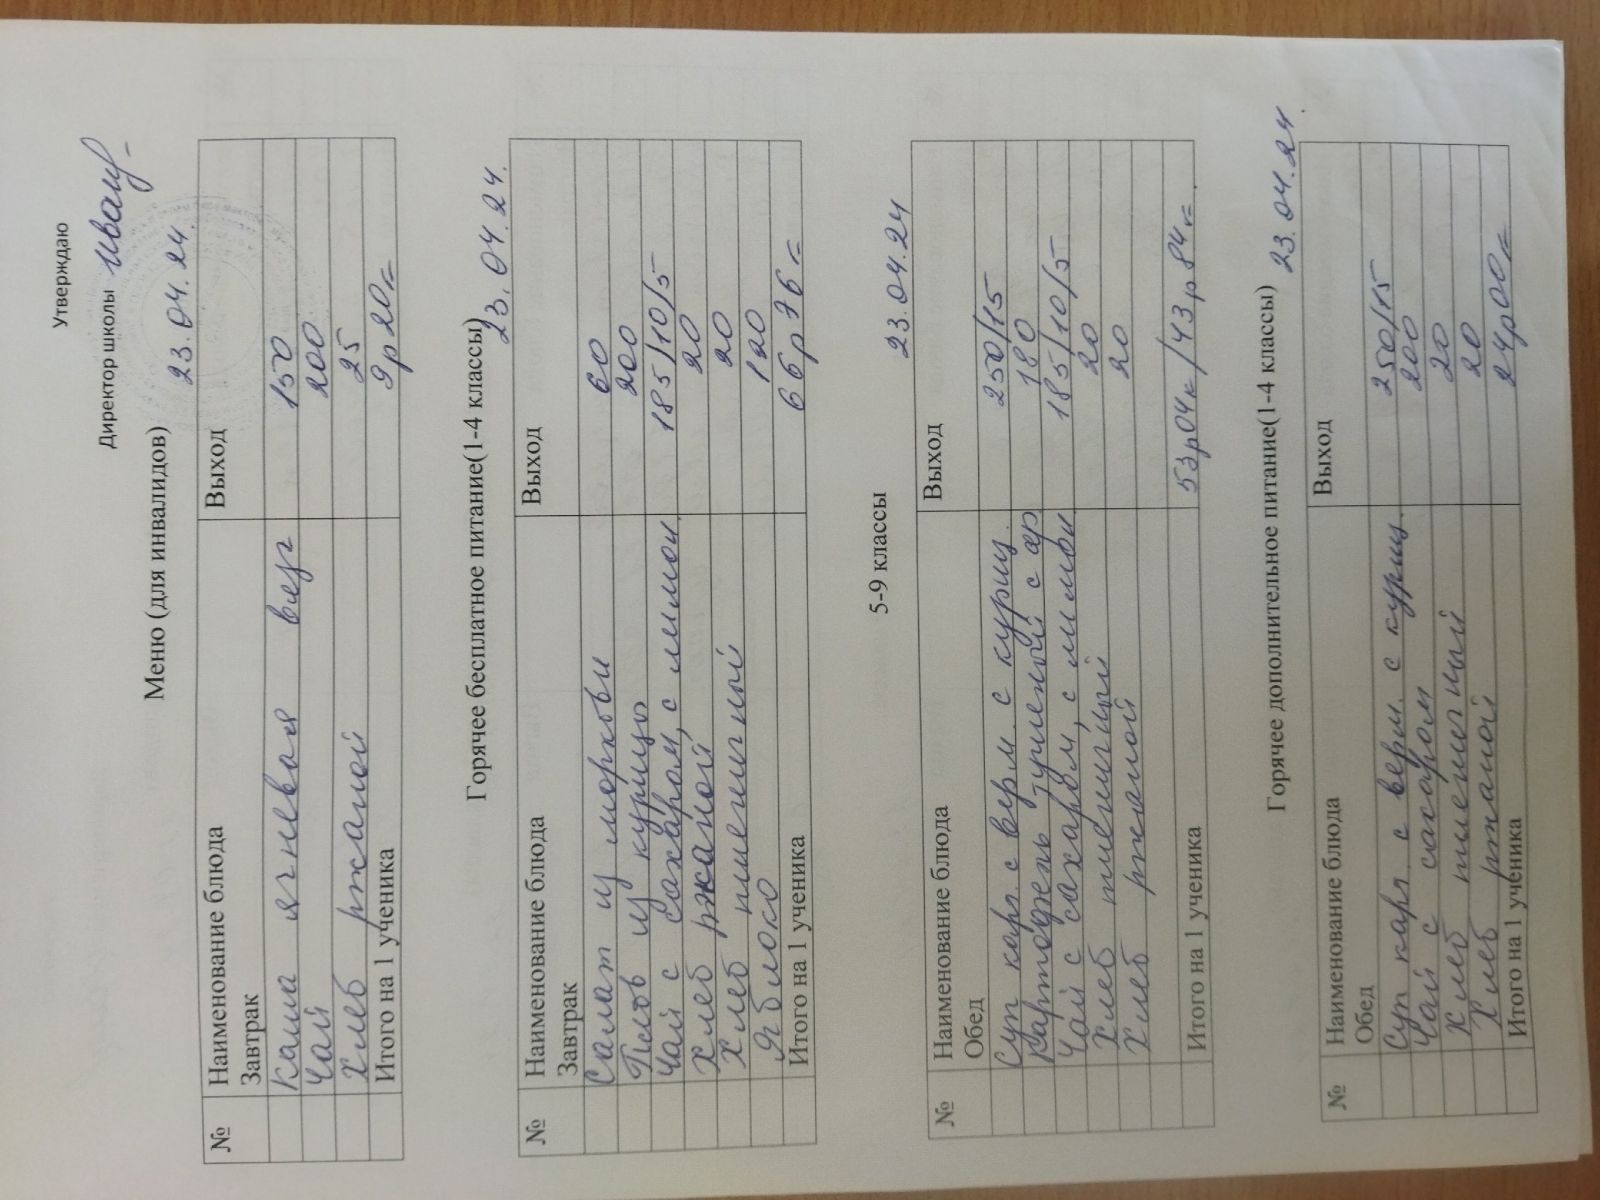 Утверждаю
Директор школы
Меню (для инвалидов) 23.04.24.
№ Наименование блюда Выход
Завтрак
Каша ячневая вязк 150
Чай 200
Хлеб ржаной 25
Итого на 1 ученика 9р20к=
Горячее бесплатное питание(1-4 классы) 23.04.24.
№ Наименование блюда Выход
Завтрак
Салат из моркови 60
Плов из курицы 200
Чай с сахаром, с лимон. 185/10/5
Хлеб ржаной 20
Хлеб пшеничный 20
Яблоко 120
Итого на 1 ученика 66р76=
5-9 классы 23.04.24
№ Наименование блюда Выход
Обед
Суп карт. с верм. с куриц. 250/15
Картофель тушеный с ов 180
Чай с сахаром, с лимон 185/10/5
Хлеб пшеничный 20
Хлеб ржаной 20
Итого на 1 ученика 53р04к/43р84к=
Горячее дополнительное питание(1-4 классы) 23.04.24.
№ Наименование блюда Выход
Обед
Суп карт. с верм. с куриц. 250/15
Чай с сахаром 200
Хлеб пшеничный 20
Хлеб ржаной 20
Итого на 1 ученика 24р00к=